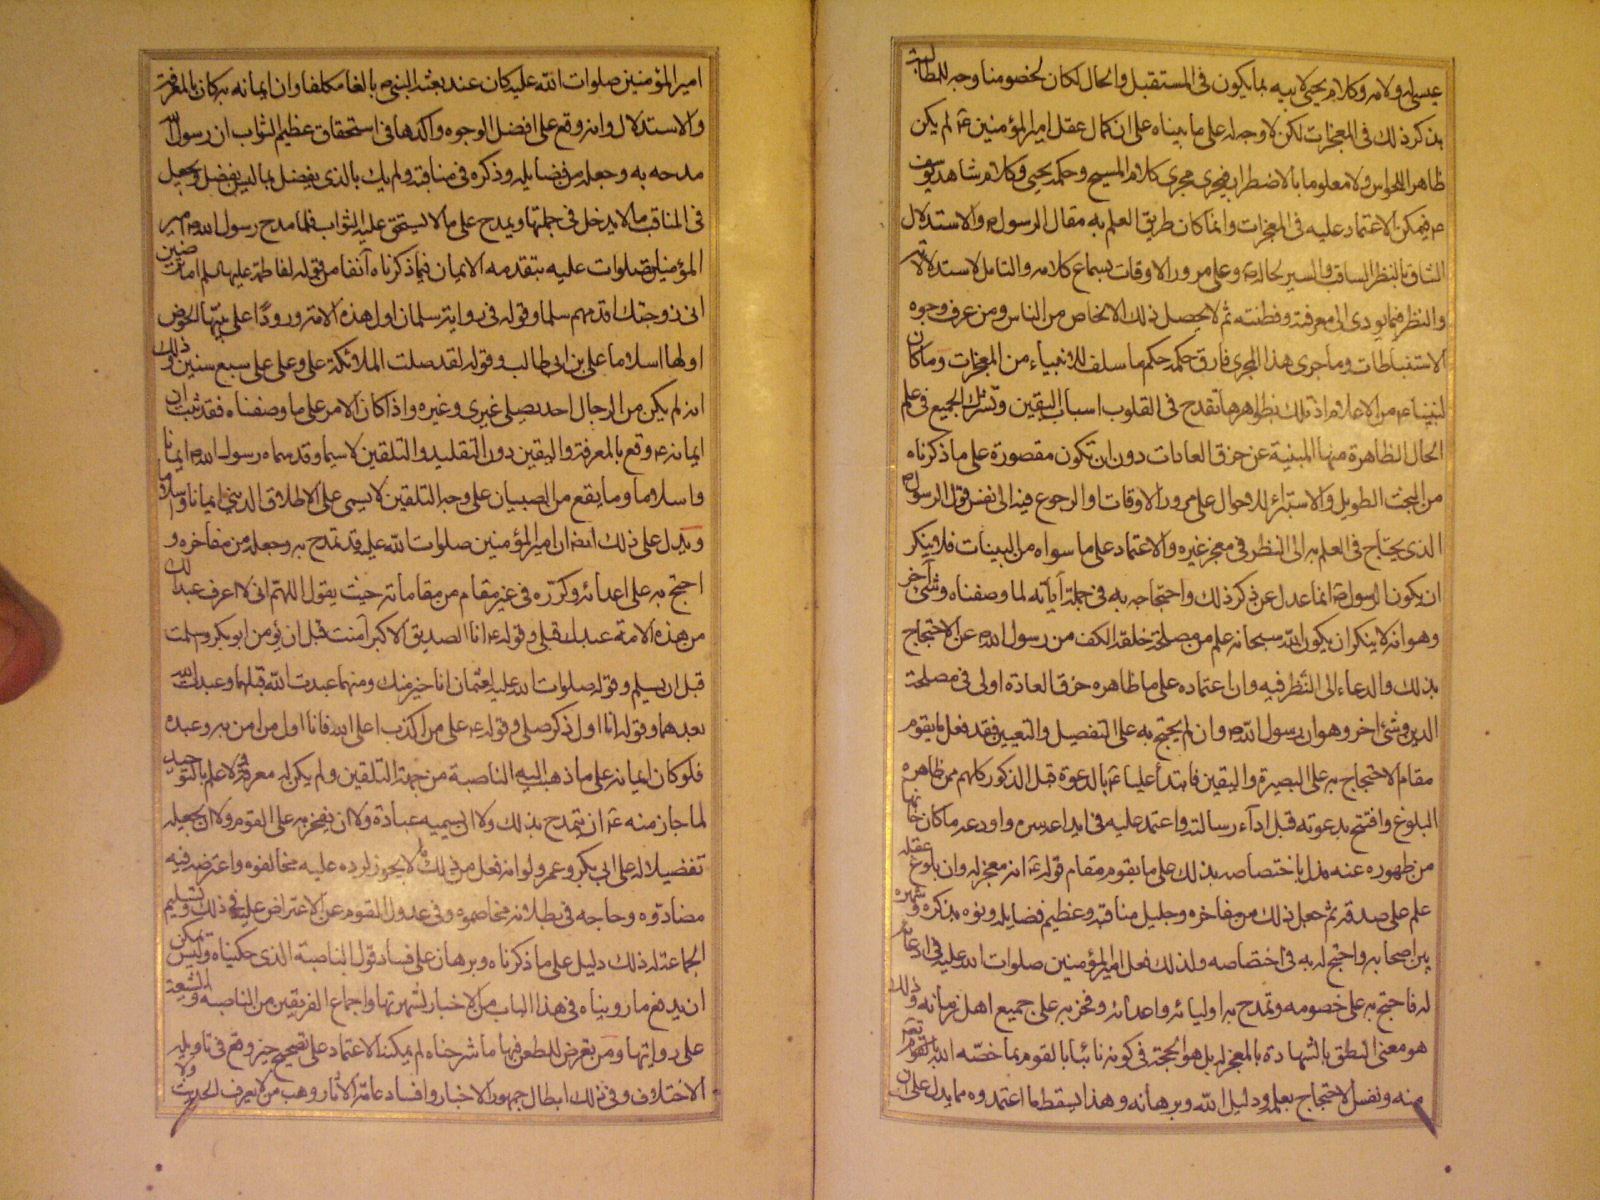 عيسى له ولامه وكلام يحيى لابيه بما يكون في المستقبل والحال لكان لخصومنا وجه للمطالبة
بذكر ذلك في المعجزات لكن لا وجه له على ما بيناه على ان كمال عقل امير المؤمنين ع لم يكن
ظاهرا للحواس ولا معلوما بالاضطرار فيجري مجرى كلام المسيح وحكمة يحيى وكلام شاهد يوسف
ع فيمكن الاعتماد عليه في المعجزات وانما كان طريق العلم به مقال الرسول ص والاستدلال
الشاق بالنظر الثاقب والسير لحاله ع وعلى مرور الاوقات بسماع كلامه والتامل لاستدلالاته
والنظر فيما يودى الى معرفته وفطنته ثم لا يحصل ذلك الا لخاص من الناس ومن عرف وجوه
الاستنباطات وما جرى هذا المجرى فارق حكمه حكم ما سلف للانبياء من المعجزات وما كان
لنبينا ع من الاعلام اذ تلك بظواهرها تقدح في القلوب اسباب اليقين وتشترك الجميع في علم
الحال الظاهرة منها المبنية عن خرق العادات دون ان تكون مقصورة على ما ذكرناه
من البحث الطويل والاستبراء للاحوال على مرور الاوقات والرجوع فيه الى نفس قول الرسول ص
الذي يحتاج في العلم به الى النظر في معجز غيره والاعتماد على ما سواه من البينات فلا ينكر
ان يكون الرسول ص انما عدل عن ذكر ذلك واحتجاجه به في جملة آياته لما وصفناه وشئ آخر
وهو انه لا ينكر ان يكون الله سبحانه علم من مصلحة خلقه الكف من رسول الله ص عن الاحتجاج
بذلك والدعاء الى النظر فيه وان اعتماده على ما ظاهره خرق العادة اولى في مصلحة
الدين وشئ اخر وهو ان رسول الله ص وان لم يحتج به على التفصيل والتعيين فقد فعل ما يقوم
مقام الاحتجاج به على البصيرة واليقين فابتدأ عليا ع بالدعوة قبل الذكور كلهم ممن ظاهره
البلوغ وافتتح بدعوته قبل اداء رسالته واعتمد عليه في ايداعه سره واودعه ما كان خائفا
من ظهوره عنه فدل باختصاصه بذلك على ما يقوم مقام قوله ع انه معجز له وان بلوغ عقله
علم على صدقه ثم جعل ذلك من مفاخره وجليل مناقبه وعظيم فضايله ونوه بذكره وشهره
بين اصحابه واحتج له به في اختصاصه ولذلك فعل امير المؤمنين صلوات الله عليه في ادعائه
له فاحتج به على خصومه وتمدح به اوليائه واعدائه وفخر به على جميع اهل زمانه وذلك
هو معنى النطق بالشهادة بالمعجز له بل هو الحجة في كونه نائبا بالقوم بما خصه الله تعالى
منه ونفس الاحتجاج بعلمه ودليل الله وبرهانه وهذا يسقط ما اعتمدوه مما يدل على ان
امير المؤمنين صلوات الله عليه كان عند بعثة النبي ص بالغا مكلفا وان ايمانه به كان بالمعرفة
والاستدلال وانه وقع على افضل الوجوه وآكدها في استحقاق عظيم الثواب ان رسول الله
مدحه به وجعله من فضايله وذكره في مناقبه ولم يك بالذي يفضل بما ليس بفضل ويجعل
في المناقب ما لا يدخل في جملتها ويمدح على ما لا يستحق عليه الثواب فلما مدح رسول الله ص امير
المؤمنين صلوات عليه بتقدمه الايمان فيما ذكرناه آنفا من قوله لفاطمة عليها السلم اما ترضين
اني زوجتك اقدمهم سلما وقوله في رواية سلمان اول هذه الامة ورودا على نبيها الحوض
اولها اسلاما علي بن ابي طالب وقوله لقد صلت الملائكة علي وعلى علي سبع سنين وذلك
انه لم يكن من الرجال احد يصلي غيري وغيره واذا كان الامر على ما وصفناه فقد ثبت ان
ايمانه ع وقع بالمعرفة واليقين دون التقليد والتلقين لا سيما وقد سماه رسول الله ص ايمانا
واسلاما وما يقع من الصبيان على وجه التلقين لا يسمى على الاطلاق الديني ايمانا واسلاما
ويدل على ذلك ايضا ان امير المؤمنين صلوات الله عليه قد تمدح به وجعله من مفاخره و
احتج به على اعدائه وكرره في غير مقام من مقاماته حيث يقول اللهم اني لا اعرف عبدا لك
من هذه الامة عبدك قبلي وقوله ع انا الصديق الاكبر آمنت قبل ان يؤمن ابو بكر واسلمت
قبل ان يسلم وقوله صلوات الله عليه لعثمان انا خير منك ومنهما عبدت الله قبلهما وعبدت الله
بعدهما وقوله انا اول ذكر صلى وقوله ع على من اكذب اعلى الله فانا اول من امن به وعبده
فلو كان ايمانه على ما ذهب اليه الناصبة من جهة التلقين ولم يكن له معرفة ولا علم بالتوحيد
لما جاز منه ع ان يتمدح بذلك ولا ان يسميه عبادة ولا ان يفخر به على القوم ولا ان يجعله
تفضيلا له على ابي بكر وعمر ولو انه فعل من ذلك ما لا يجوز لرده عليه مخالفوه واعترضه فيه
مضادوه وحاجه في بطلانه مخاصموه وفي عدول القوم عن الاعتراض عليه في ذلك وتسليم
الجماعة له ذلك دليل على ما ذكرناه وبرهان على فساد قول الناصبة الذي حكيناه وليس يمكن
ان يدفع ما رويناه في هذا الباب من الاخبار لشهرتها واجماع الفريقين من الناصبة والشيعة
على روايتها ومن تعرض للطعن فيها ما شرحناه لم يمكنه الاعتماد على تصحيح خبر وقع في تاويله
الاختلاف وفي ذلك ابطال جمهور الاخبار وافساد عامة الآثار وهب من لا يعرف الحديث ولا